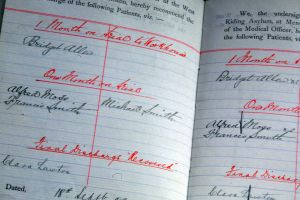 hereby recommend the
of the following Patients, viz. —
1 Month on Trial to Workhouse
Bridget Allen
One Month on Trial
Alfred Moss
Francis Smith Michael Smith
Final Discharge "Recovered"
Clara Lawton
Dated. 18th Sept
We, the undersi
Riding Asylum, at M
of the Medical Officer,
the following Patients, viz.
1 Month on
Bridget Allen
One Month
Alfred Moss
Francis Smith
Final Discharge
Clara Lawton